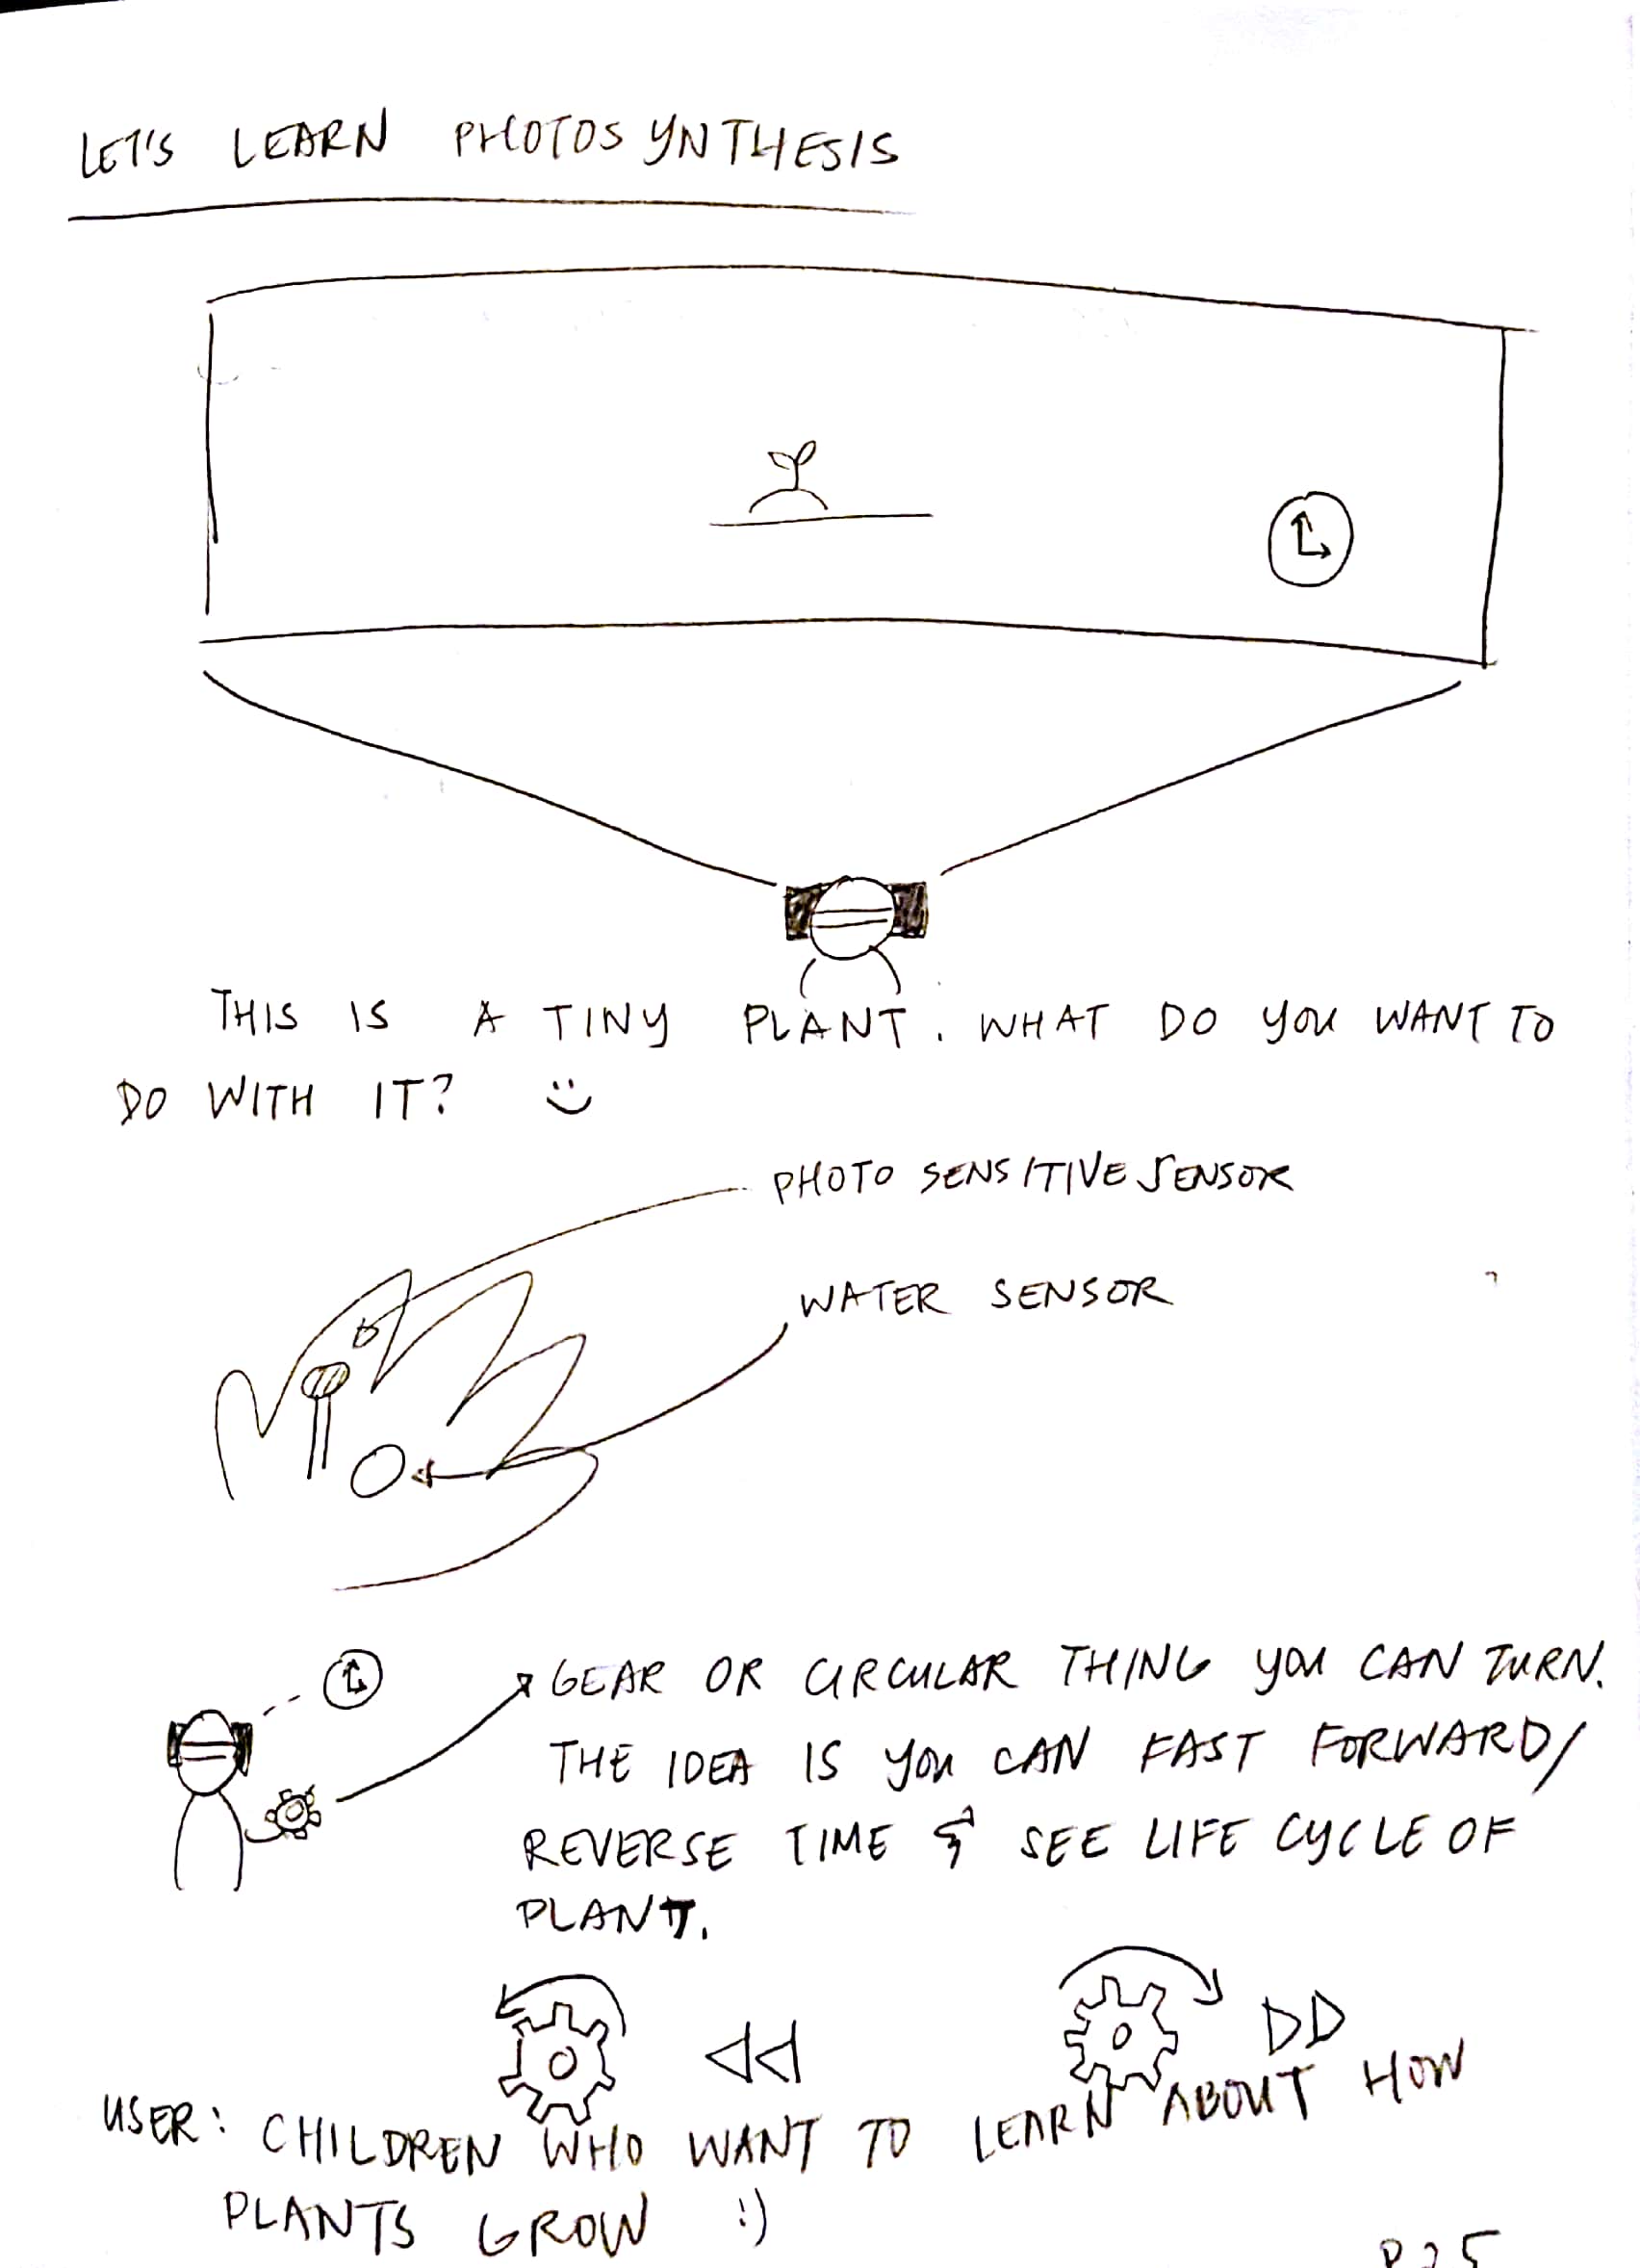 LET'S LEARN PHOTOSYNTHESIS
THIS IS A TINY PLANT. WHAT DO YOU WANT TO
DO WITH IT? :)
PHOTO SENSITIVE SENSOR
WATER SENSOR
GEAR OR CIRCULAR THING YOU CAN TURN.
THE IDEA IS YOU CAN FAST FORWARD/
REVERSE TIME & SEE LIFE CYCLE OF
PLANT.
USER: CHILDREN WHO WANT TO LEARN ABOUT HOW
PLANTS GROW :)